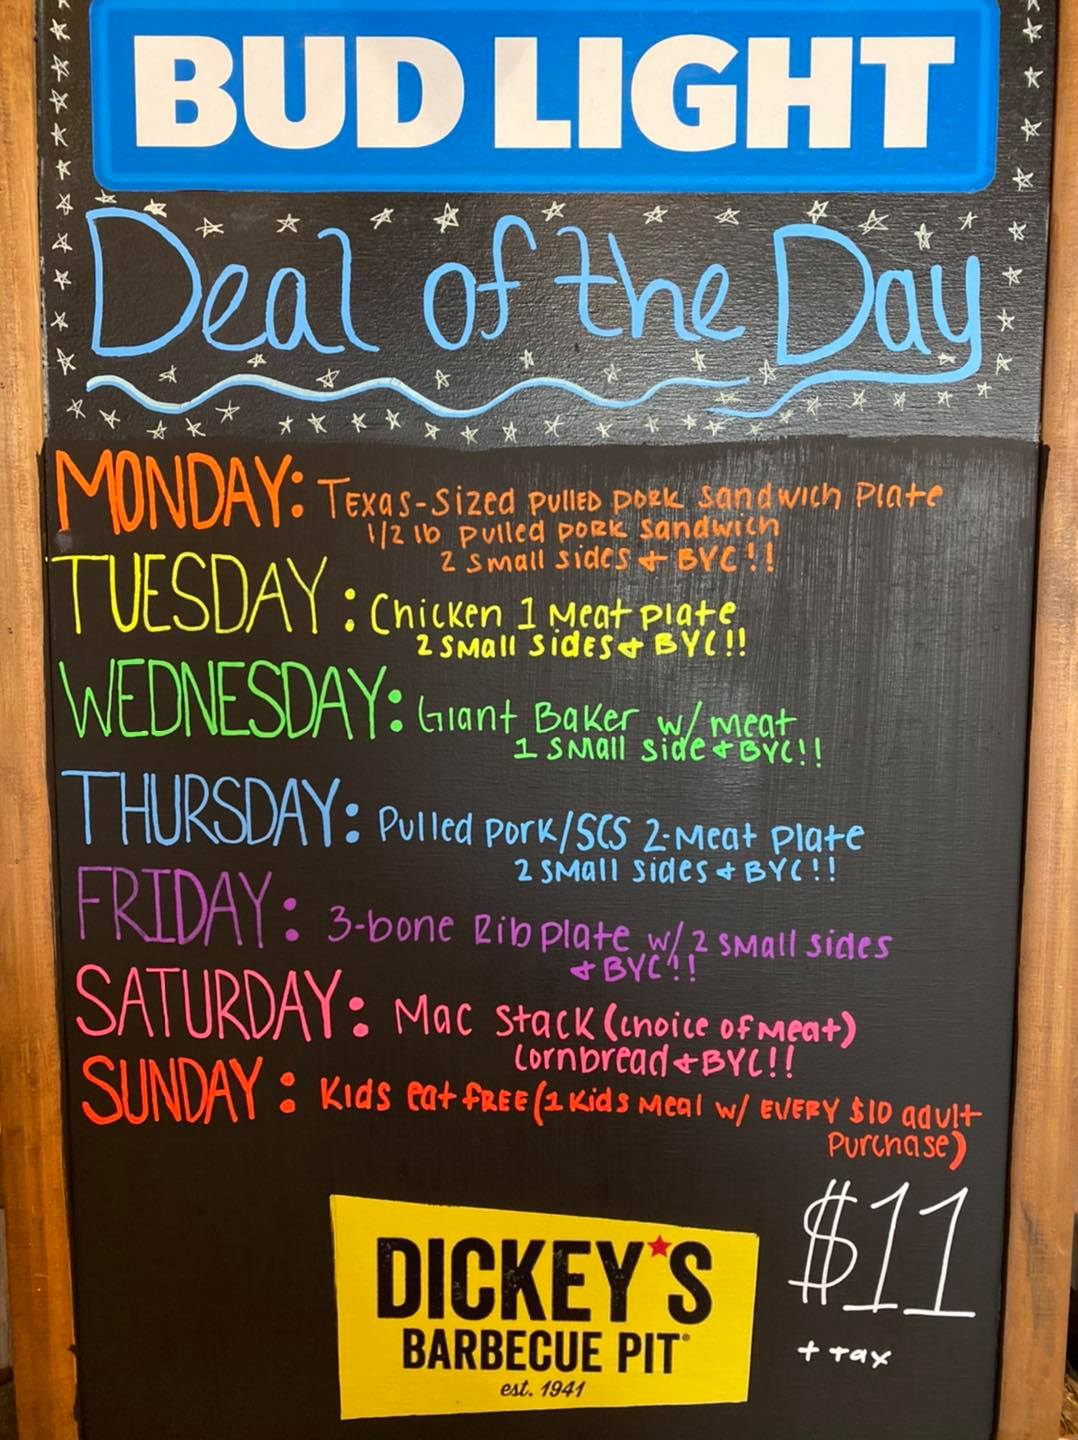 BUD LIGHT
Deal of the Day
MONDAY: Texas-Sized Pulled Pork Sandwich Plate
1/2 lb Pulled Pork Sandwich
2 Small Sides + BYC!!
TUESDAY: Chicken 1 Meat Plate
2 Small Sides + BYC!!
WEDNESDAY: Giant Baker w/ meat
1 Small side + BYC!!
THURSDAY: Pulled Pork/SCS 2-Meat Plate
2 Small Sides + BYC!!
FRIDAY: 3-bone Rib Plate w/ 2 Small Sides
+ BYC!!
SATURDAY: Mac Stack (choice of Meat)
Cornbread + BYC!!
SUNDAY: Kids eat FREE (1 Kids Meal w/ EVERY $10 adult
Purchase)
$11
+ tax
DICKEY'S
BARBECUE PIT®
est. 1941